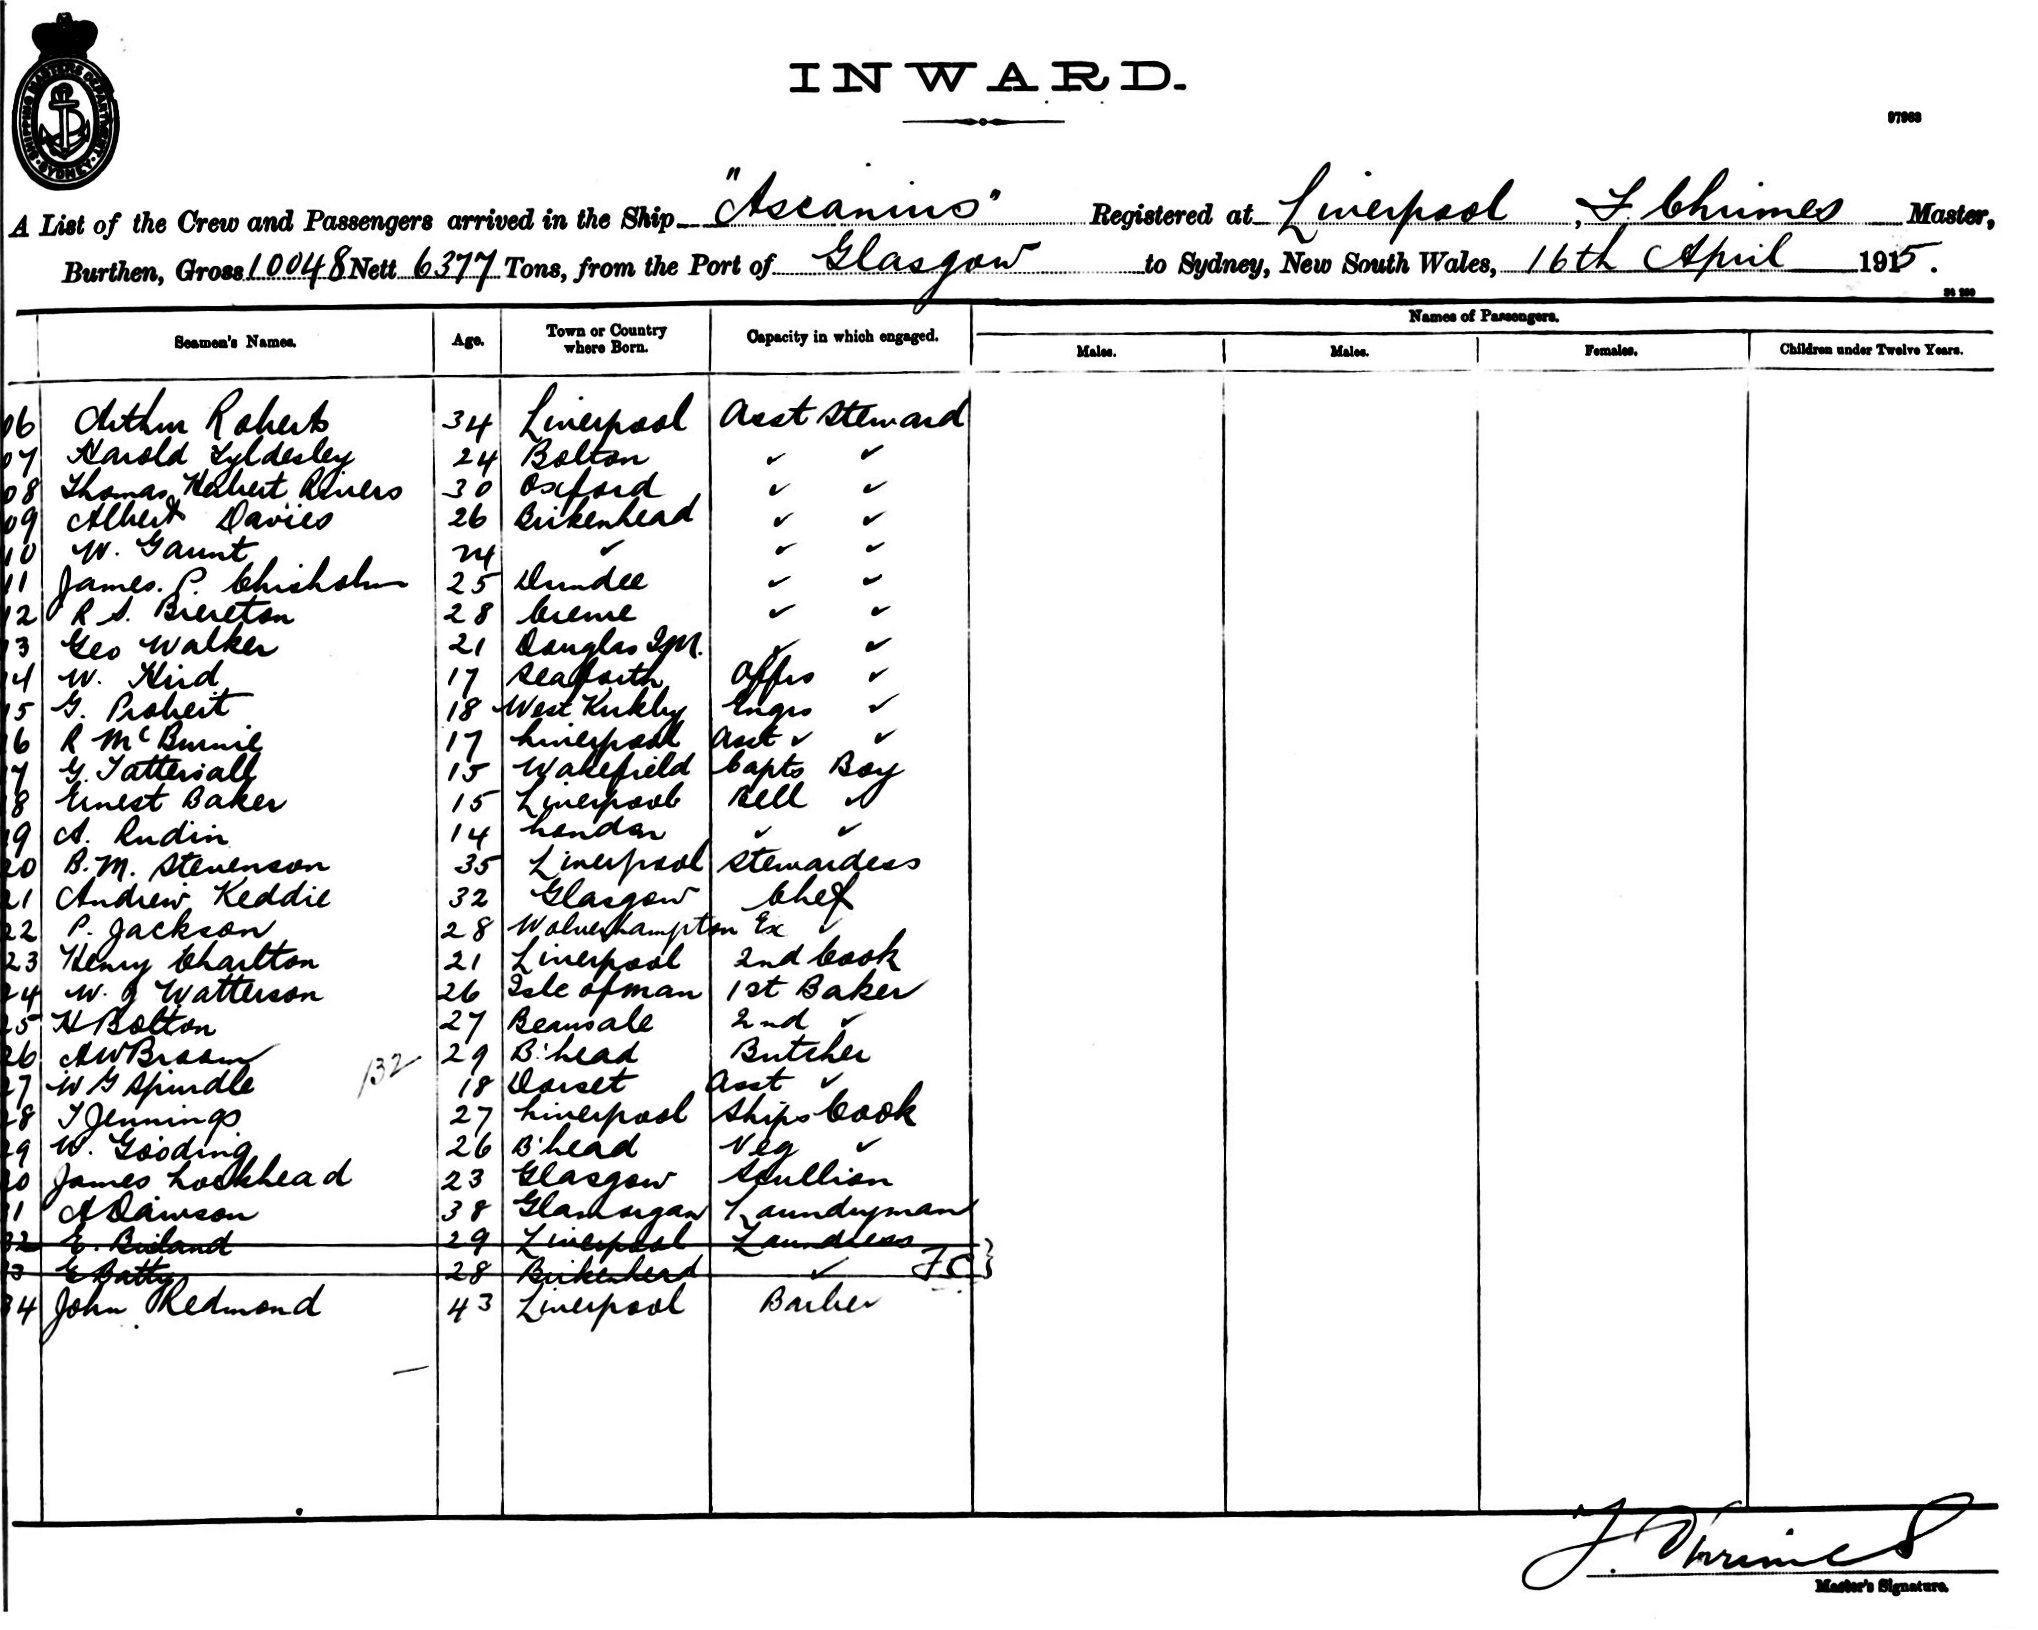 INWARD.
97963
SHIPPING MASTERS DEPARTMENT · SYDNEY
A List of the Crew and Passengers arrived in the Ship "Ascanius" Registered at Liverpool, F. Chrimes Master,
Burthen, Gross 10048 Nett 6377 Tons, from the Port of Glasgow to Sydney, New South Wales, 16th April 1915.
Names of Passengers.
Seamen's Names. Age. Town or Country where Born. Capacity in which engaged. Males. Males. Females. Children under Twelve Years.
06 Arthur Roberts 34 Liverpool Asst Steward
07 Harold Tyldesley 24 Bolton ✓ ✓
08 Thomas Herbert Rivers 30 Oxford ✓ ✓
09 Albert Davies 26 Birkenhead ✓ ✓
10 W. Gaunt 24 ✓ ✓ ✓
11 James. P. Chisholm 25 Dundee ✓ ✓
12 R S. Brereton 28 Crewe ✓ ✓
13 Geo Walker 21 Douglas I.M. ✓ ✓
14 W. Hird 17 Seaforth Offrs ✓
15 G. Probert 18 West Kirkby Engrs ✓
16 R McBurnie 17 Liverpool Asst ✓ ✓
17 G. Tattersall 15 Wakefield Capts Boy
18 Ernest Baker 15 Liverpool Bell ✓
19 A. Rudin 14 London ✓ ✓
20 B. M. Stevenson 35 Liverpool Stewardess
21 Andrew Keddie 32 Glasgow Chef
22 P. Jackson 28 Wolverhampton Ex ✓
23 Henry Charlton 21 Liverpool 2nd Cook
24 W. J Watterson 26 Isle of Man 1st Baker
25 H Bolton 27 2nd ✓
26 A W Broom 29 B'head Butcher
132
27 W G Spindle 18 Dorset Asst ✓
28 T Jennings 27 Liverpool Ships Cook
29 W. Gooding 26 B'head Veg ✓
30 James Lockhead 23 Glasgow Scullion
31 A Dawson 38 Glamorgan Laundryman
32 E. 29 Liverpool Laundress
33 E Batty 28 Birkenhead ✓ FC
34 John Redmond 43 Liverpool Barber
F. Chrimes
Master's Signature.